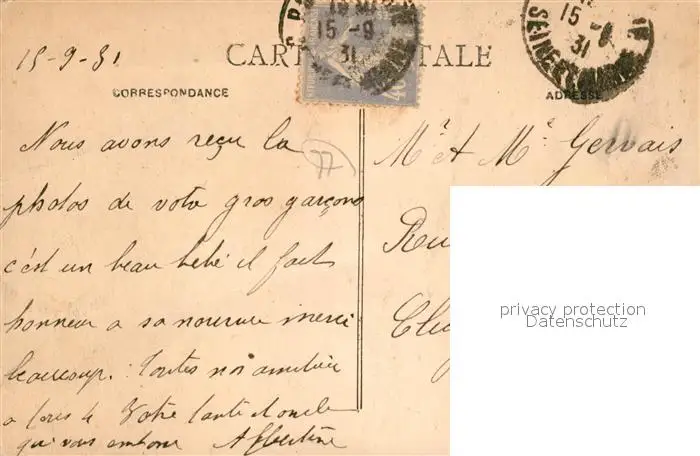 15-9-31
CARTE POSTALE
15-9
31
15-9
31
SEINE-ET-MARNE
40c
CORRESPONDANCE
ADRESSE
77
Nous avons reçu la
photos de votre gros garçons
c'est un beau bébé il fait
honneur a sa nourrice merci
beaucoup. Toutes nos amitiés
a tous Votre tante
qui vous embrasse Albertine
Mr et Me Gervais
privacy protection
Datenschutz